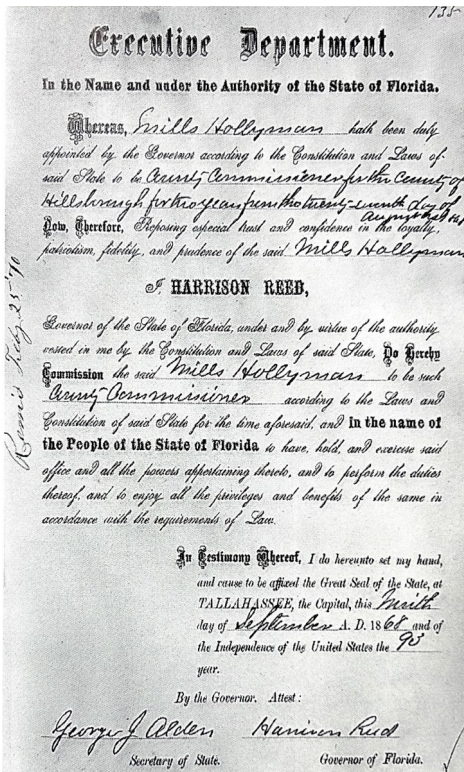 135
Executive Department.
In the Name and under the Authority of the State of Florida.
Whereas, Mills Hollyman hath been duly
appointed by the Governor according to the Constitution and Laws of
said State to be County Commissioner for the County of
Hillsborough for two years from the twenty day of
August
Now, Therefore, Reposing especial trust and confidence in the loyalty,
patriotism, fidelity, and prudence of the said Mills Hollyman
I, HARRISON REED,
Governor of the State of Florida, under and by virtue of the authority
vested in me by the Constitution and Laws of said State, Do Hereby
Commission the said Mills Hollyman to be such
County Commissioner according to the Laws and
Constitution of said State for the time aforesaid, and In the name of
the People of the State of Florida to have, hold, and exercise said
office and all the powers appertaining thereto, and to perform the duties
thereof, and to enjoy all the privileges and benefits of the same in
accordance with the requirements of Law.
In Testimony Whereof, I do hereunto set my hand,
and cause to be affixed the Great Seal of the State, at
TALLAHASSEE, the Capital, this Ninth
day of September A. D. 1868 and of
the Independence of the United States the 93
year.
By the Governor. Attest:
George J Alden Harrison Reed
Secretary of State. Governor of Florida.
Feby 25 '70